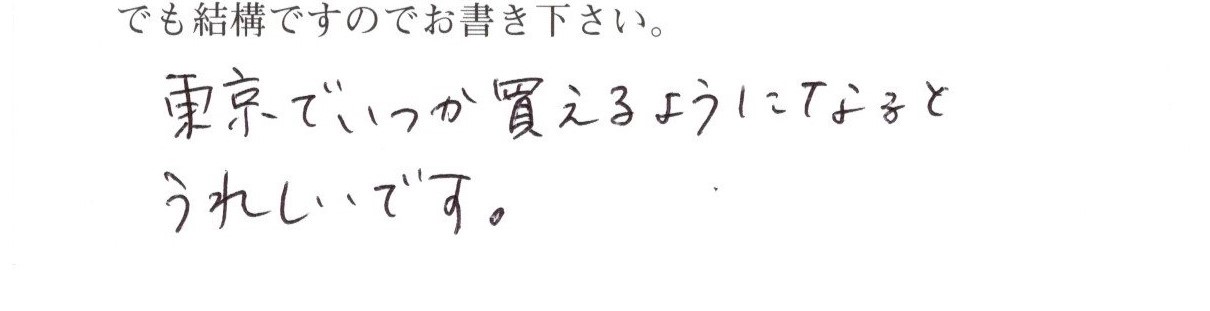 でも結構ですのでお書き下さい。
東京でいつか買えるようになると
うれしいです。